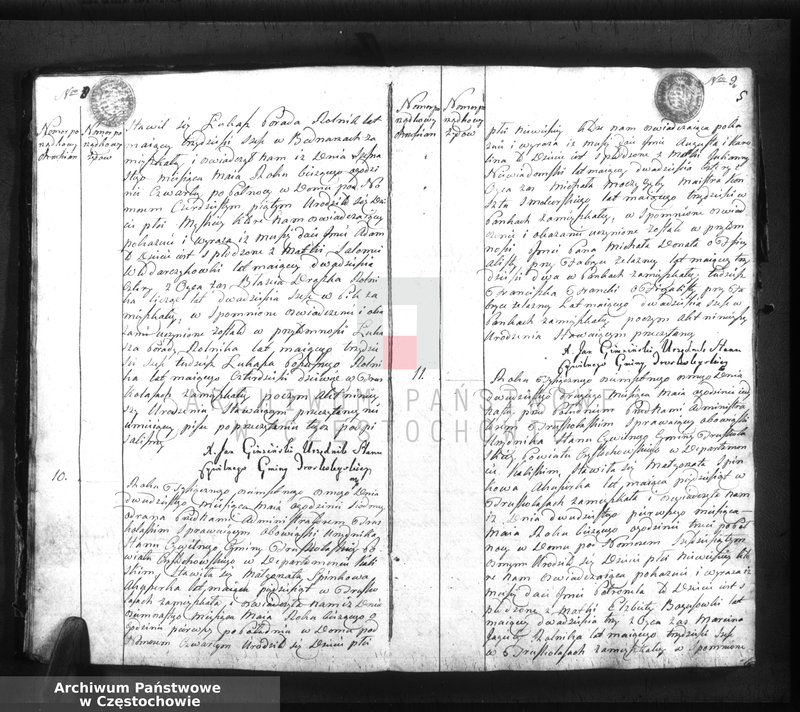 No 8
Numer po
rządkowy
Numer po
rządkowy
Stawił się Łukasz Porada Rolnik lat
maiący trzydzieści sześć w Bednarzach za
mieszkały, i oświadczył nam iż Dnia
stego miesiąca Maia Roku bieżącego godzi
nie czwartey po północy w Domu pod No
merem Czterdziestym piątym Urodziło się Dzie
cie płci Męskiey które nam oświadczaiący
pokazuie i wyraża iż musi dać Jmię Adam
To Dziecie iest spłodzone z Matki Salomei
lat maiącey dwadzieścia
cztery z Oyca zaś Błażeia Rolni
ka liczące lat dwadzieścia sześć w za
mieszkały, w spomnione oświadczenie i oka
zanie uczynione zostało w przytomności Łuka
sza Porady Rolnika lat maiącego trzydzie
ści sześć tudzież Łukasza Rolni
ka lat maiącego Czterdzieści dziewięć w Trus
kolasach zamieszkały poczym Akt ninieyszy
Urodzenia Stawaiącym przeczytany nie
umieiący pisać po przeczytaniu tego podpi
saliśmy
X. Jan Gieziński Urzędnik Stanu
Cywilnego Gminy Truskolaskiey
10.
Roku Tysięcznego osmsetnego osmego Dnia
dwudziestego miesiąca maia ogodzinie siódmey
zrana Przedmami Administratorem Trus
kolaskim Sprawuiącym obowiązki Urzędnika
Stanu Cywilnego Gminy Truskolaskiey Po
wiatu Częstochowskiego w Departamencie Kali
skim, Stawiła się Małgorzata Spinkowa
Akuszerka lat maiąca pięćdziesiąt w Trusko
lasach zamieszkała i oświadczyła nam iż Dnia
osmnastego Miesiąca Maia Roku bieżącego o
godzinie pierwszey po południu w Domu pod
Numerem czwartym Urodziło się Dziecie płci
No 9
5
Numer po
rządkowy
Numer po
rządkowy
płci niewieściey które nam oświadczaiąca poka
zuie i wyraża iż musi dać Jmię Augusta i Karo
lina To Dziecie iest spłodzone z Matki Julianny
Niewiadomskiey lat maiącey dwadzieścia cztery z
Oyca zaś Michała maistra kun
sztu lat maiącego trzydzieści w
Pankach zamieszkały, w spomnione oświad
czenie i okazanie uczynione zostało w przytom
ności Jmci Pana Michała Donata
przy Fabryce żelazney lat maiący trzy
dzieści dwa w Pankach zamieszkały, tudzież
Franciszka przy Fa
bryce żelazney Lat maiącego dwadzieścia sześć w
Pankach zamieszkały poczym Akt ninieyszy
Urodzenia Stawaiącym przeczytany
X. Jan Gieziński Urzędnik Stanu
Cywilnego Gminy Truskolaskiey
11
Roku Tysięcznego osmsetnego osmego Dnia
dwudziestego drugiego miesiąca maia ogodzinie
przed południem Przedmami Administra
torem Truskolaskim Sprawuiącym obowiązki
Urzędnika Stanu Cywilnego Gminy Truskola
skiey Powiatu Częstochowskiego w Departamen
cie Kaliskim, Stawiła się Małgorzata Spin
kowa Akuszerka lat maiąca pięćdziesiąt w
Truskolasach zamieszkała i oświadczyła nam
iż Dnia dwudziestego pierwszego miesiąca
Maia Roku bieżącego ogodzinie trzeci po pół
nocy w Domu pod Numerem sześćdziesiątym
osmym Urodziło się Dziecie płci niewieściey któ
re nam oświadczaiąca pokazuie i wyraża iż
musi dać Jmię Petronela To Dziecie iest s
płodzone z Matki Elżbiety lat
maiącey dwadzieścia trzy z Oyca zaś Marcina
Rolnika lat maiącego trzydzieści sześć
w Truskolasach zamieszkałey w spomnione
ARCHIWUM PAŃSTWOWE
W CZĘSTOCHOWIE
Archiwum Państwowe
w Częstochowie